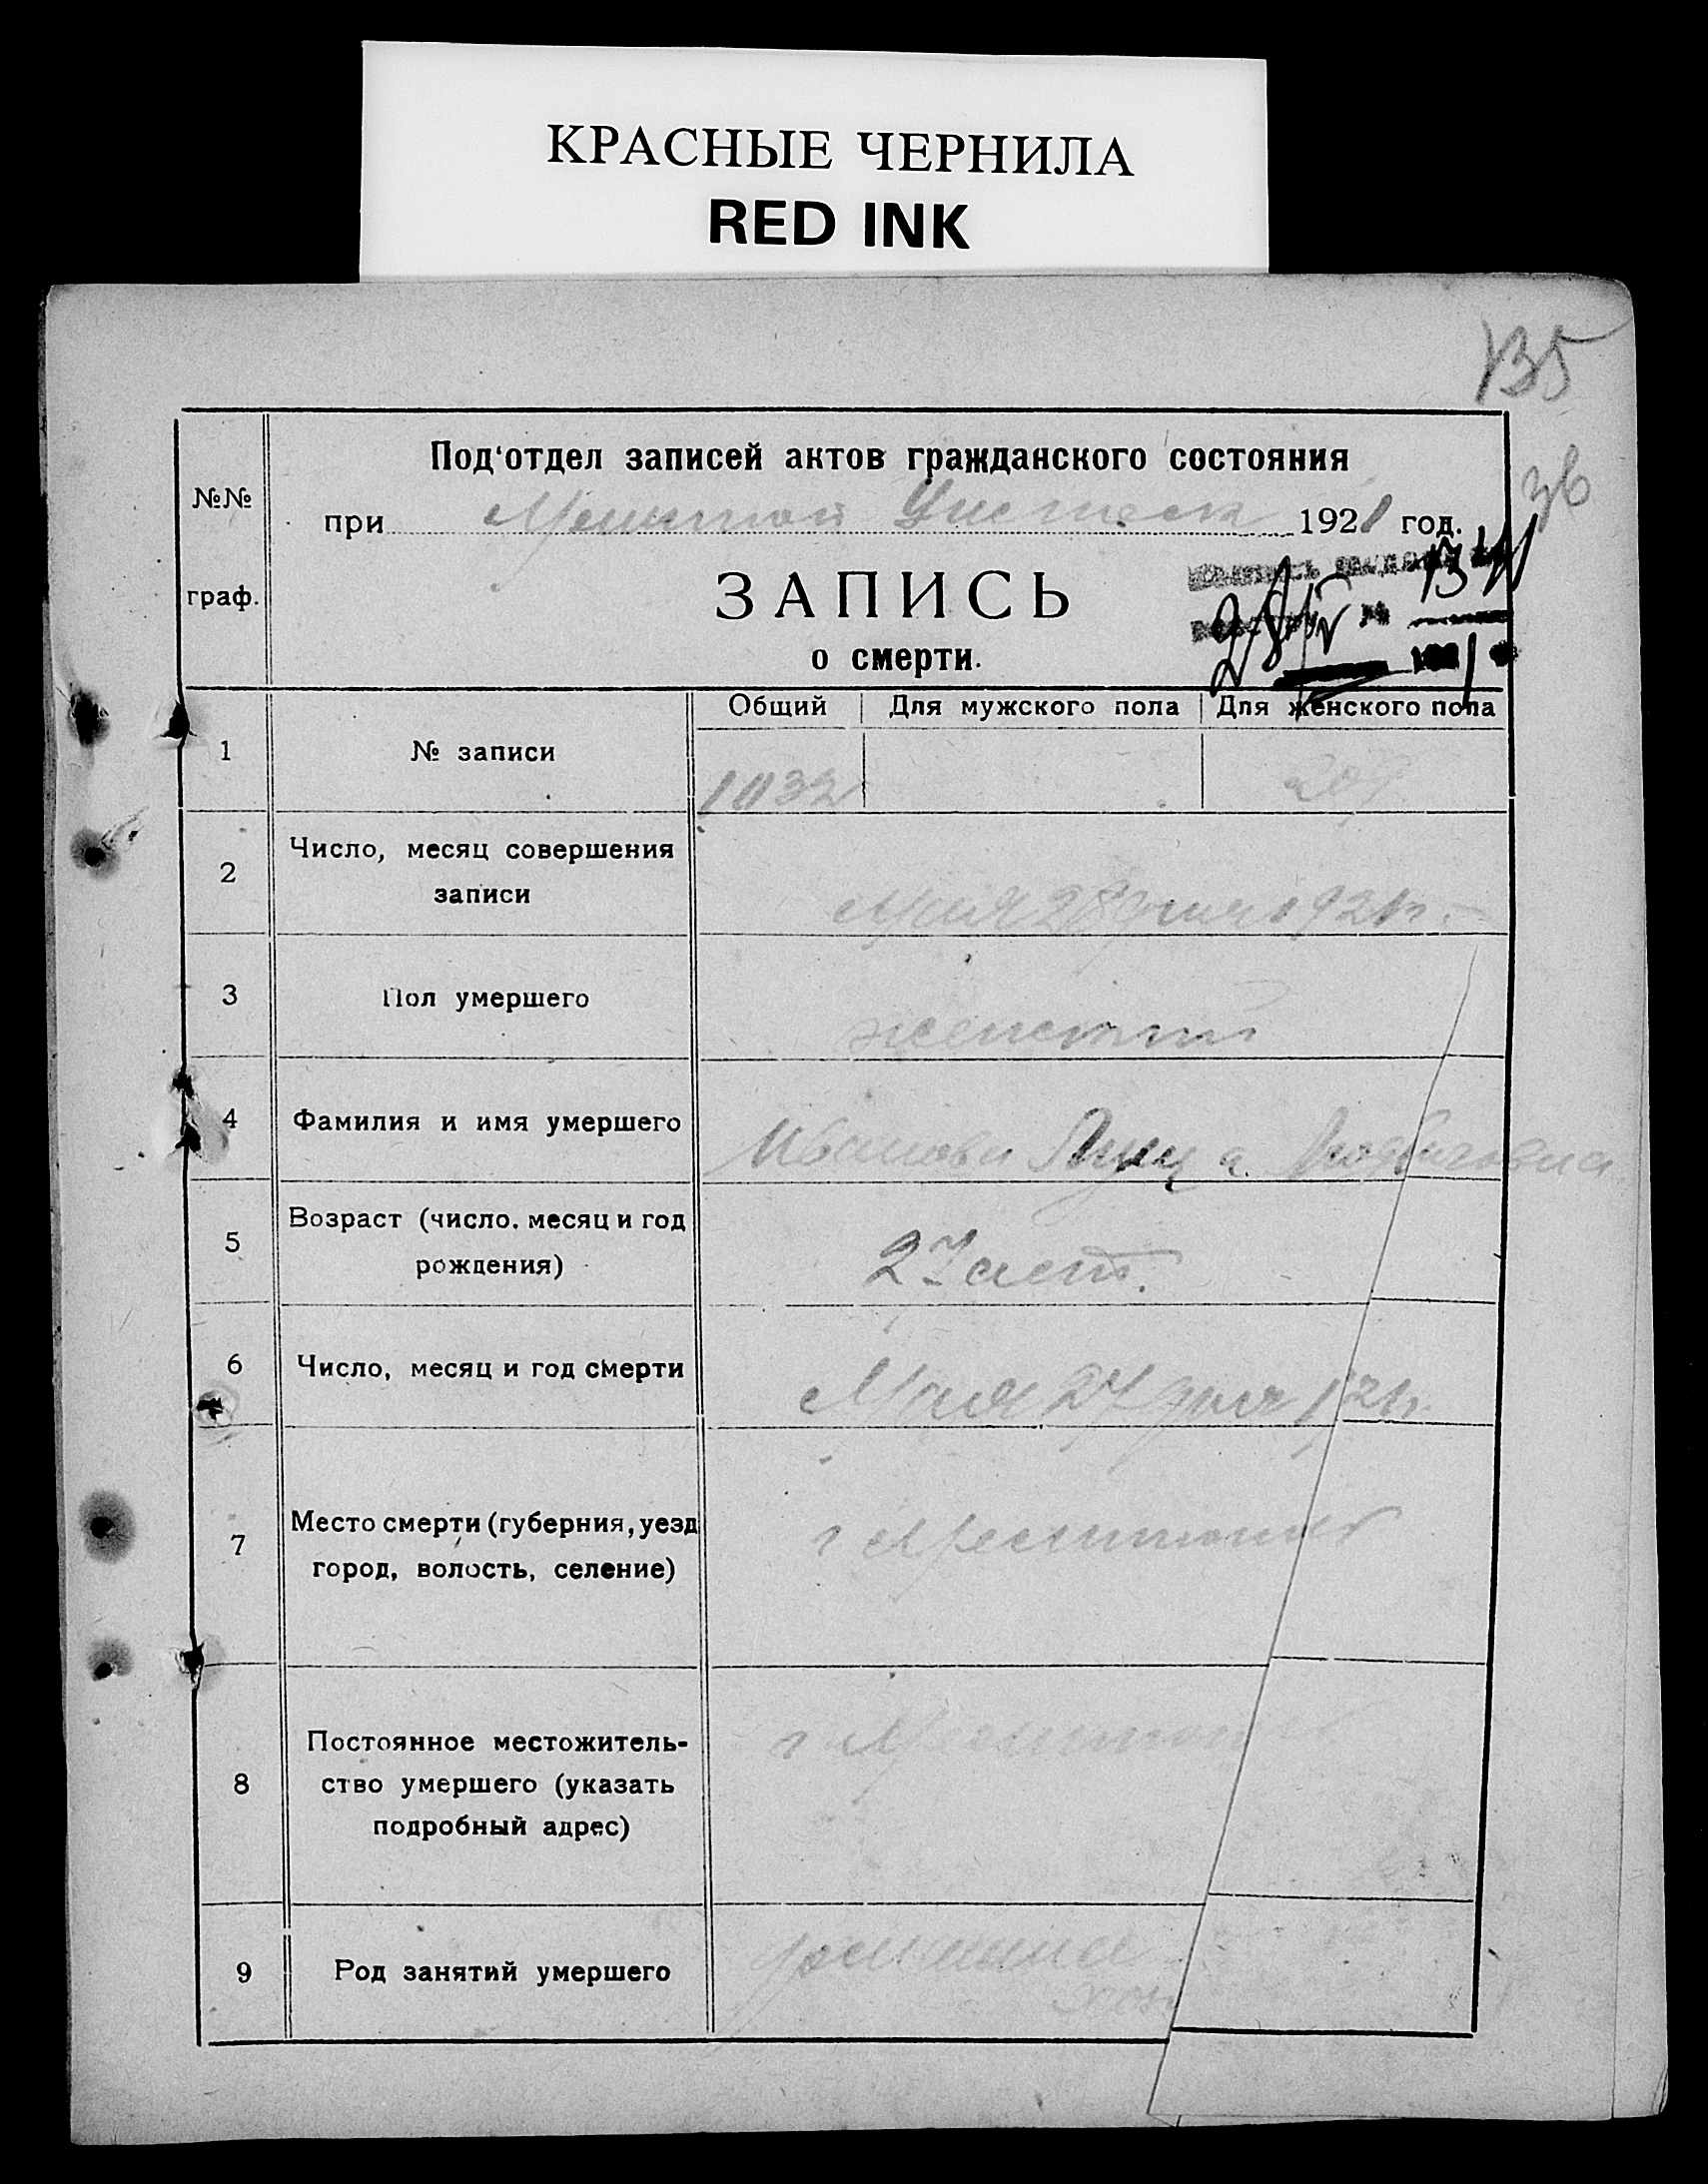 КРАСНЫЕ ЧЕРНИЛА
RED INK
135
36
№№
граф.
Под‘отдел записей актов гражданского состояния
при 1921 год.
ЗАПИСЬ
о смерти.
Общий Для мужского пола Для женского пола
1 № записи 1032 209
2 Число, месяц совершения
записи
Мая 28 дня 1921 г.
3 Пол умершего женский
4 Фамилия и имя умершего Иванова
5 Возраст (число, месяц и год
рождения)
27 лет.
6 Число, месяц и год смерти Мая 27 дня 1921 г.
7 Место смерти (губерния, уезд
город, волость, селение)
г
8 Постоянное местожитель-
ство умершего (указать
подробный адрес)
г
9 Род занятий умершего домашнее
хоз